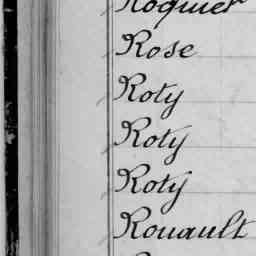 Roquier
Rose
Roty
Roty
Roty
Rouault